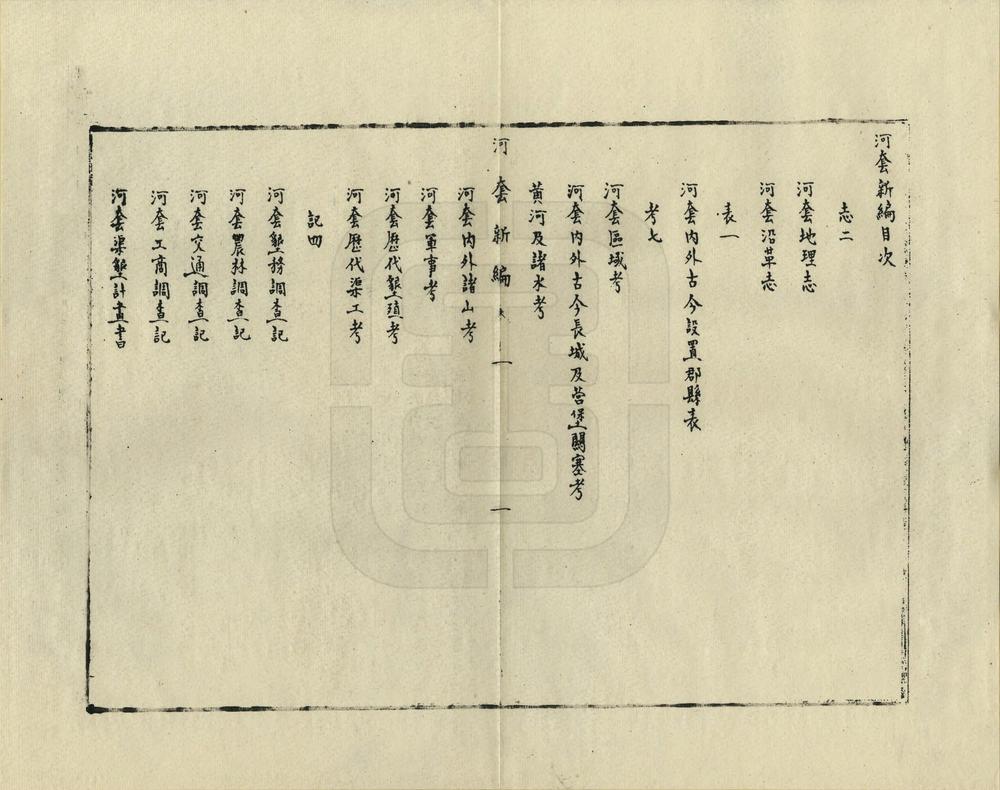 河套新編目次
志二
河套地理志
河套沿革志
表一
河套內外古今設置郡縣表
考七
河套區域考
河套內外古今長城及營堡關塞考
黃河及諸水考
河套新編 一 一
河套內外諸山考
河套軍事考
河套歷代墾殖考
河套歷代渠工考
記四
河套墾務調查記
河套農林調查記
河套交通調查記
河套工商調查記
河套渠墾計畫書